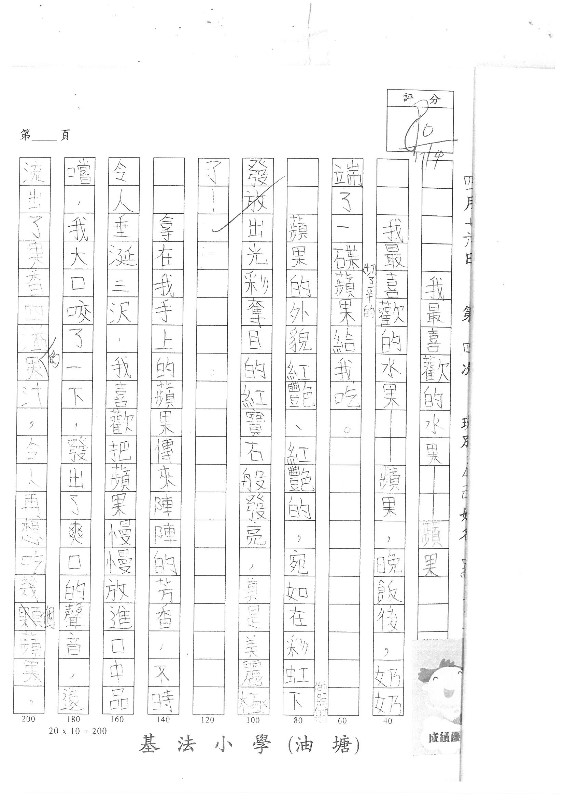 四月十六日 第四次
我最喜歡的水果——蘋果
我最喜歡的水果——蘋果，晚飯後，奶奶
端了一碟切了半的蘋果給我吃。
蘋果的外貌紅艷、紅艷的，宛如在彩虹下
發放出光彩奪目的紅寶石般發亮，真是美麗極
了！
拿在我手上的蘋果傳來陣陣的芳香，不時
令人垂涎三尺，我喜歡把蘋果慢慢放進口中品
嚐，我大口咬了一下，發出了爽口的聲音，還
流出了果汁，令人再想吃幾個蘋果。
評分
第 頁
40
60
80
100
120
140
160
180
200
20 x 10 = 200
基法小學(油塘)
成績優